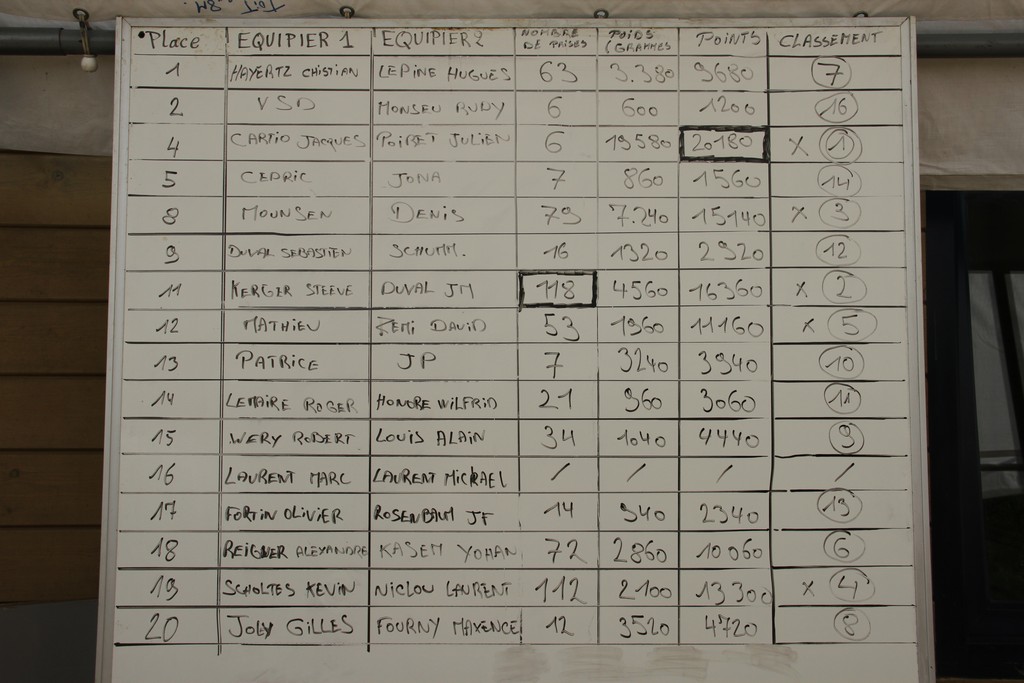 •Place EQUIPIER 1 EQUIPIER 2 NOMBRE DE PRISES POIDS (GRAMMES POINTS CLASSEMENT
1 HAYERTZ CHISTIAN LEPINE HUGUES 63 3.380 9680 7
2 VSD MONSEU RUDY 6 600 1200 16
4 CARTIO JACQUES POIRET JULIEN 6 19580 20180 x 1
5 CEDRIC JONA 7 860 1560 14
8 MOUNSEN DENIS 79 7.240 15140 x 3
9 DUVAL SEBASTIEN SCHUMM. 16 1320 2920 12
11 KERGER STEEVE DUVAL JM 118 4560 16360 x 2
12 MATHIEU REMI DAVID 53 1960 11160 x 5
13 PATRICE JP 7 3240 3940 10
14 LEMAIRE ROGER HONORE WILFRID 21 960 3060 11
15 WERY ROBERT LOUIS ALAIN 34 1040 4440 9
16 LAURENT MARC LAURENT MICKAEL / / / /
17 FORTIN OLIVIER ROSENBAUM JF 14 940 2340 13
18 REIGNER ALEXANDRE KASEM YOHAN 72 2860 10060 6
19 SCHOLTES KEVIN NICLOU LAURENT 112 2100 13300 x 4
20 JOLY GILLES FOURNY MAXENCE 12 3520 4720 8